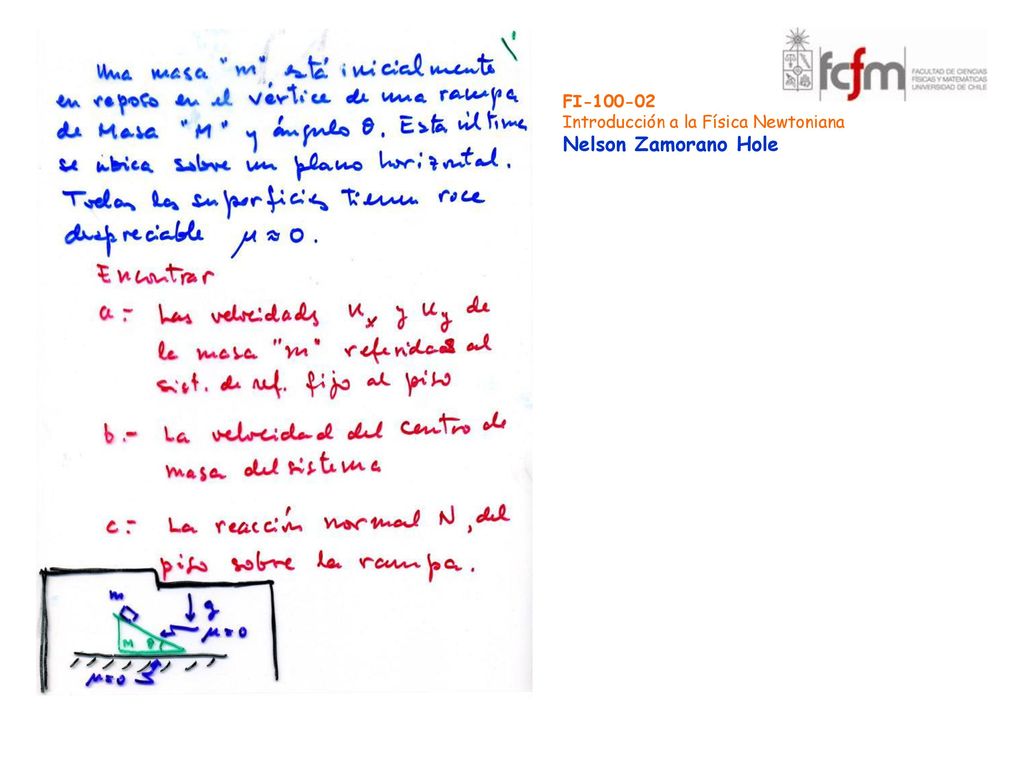 Una masa "m" está inicialmente
en reposo en el vértice de una rampa
de Masa "M" y ángulo θ. Esta última
se ubica sobre un plano horizontal.
Todas las superficies tienen roce
despreciable μ ≈ 0.
Encontrar
a.- Las velocidades u_x y u_y de
la masa "m" referidas al
sist. de ref. fijo al piso
b.- La velocidad del centro de
masa del sistema
c.- La reacción normal N, del
piso sobre la rampa.
m
g
μ=0
M θ
μ=0
fcfm
FACULTAD DE CIENCIAS
FÍSICAS Y MATEMÁTICAS
UNIVERSIDAD DE CHILE
FI-100-02
Introducción a la Física Newtoniana
Nelson Zamorano Hole